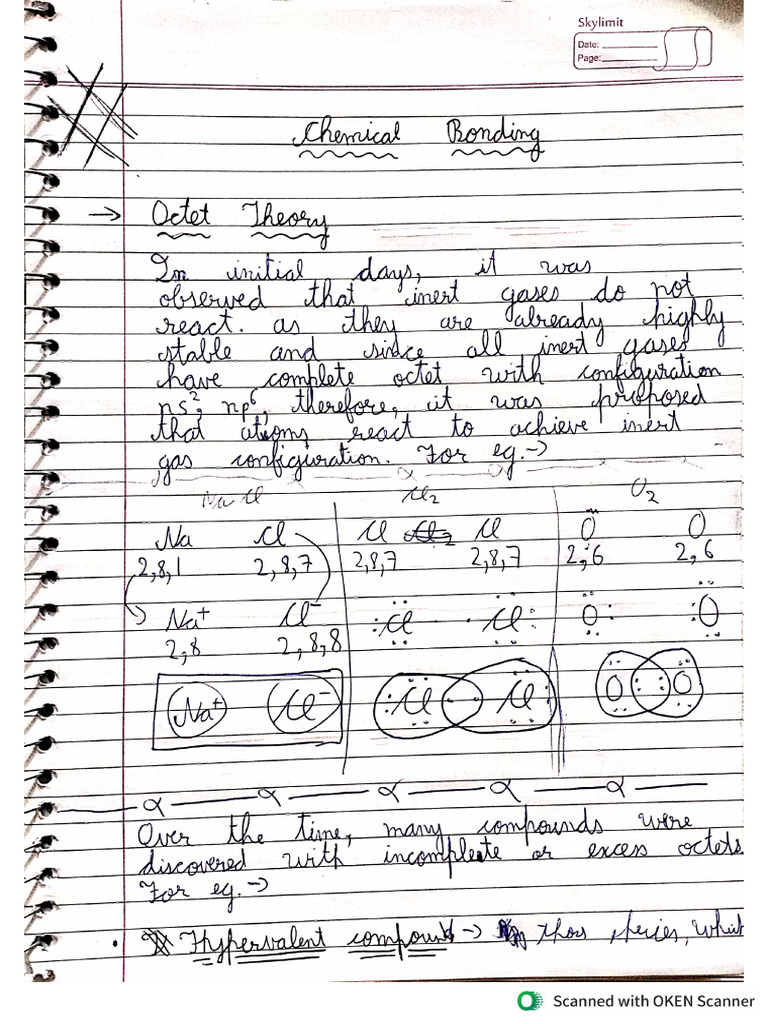 Skylimit
Date:
Page:
Chemical Bonding
→ Octet Theory
In initial days, it was
observed that inert gases do not
react. as they are already highly
stable and since all inert gases
have complete octet with configuration
ns², np⁶, therefore, it was proposed
that atoms react to achieve inert
gas configuration. For eg.→
NaCl Cl₂ O₂
Na Cl Cl Cl O O
2,8,1 2,8,7 2,8,7 2,8,7 2,6 2,6
Na⁺ Cl⁻ Cl Cl O O
2,8 2,8,8
Na⁺ Cl⁻ Cl Cl O O
Over the time, many compounds were
discovered with incomplete or excess octets.
For eg.→
• Hypervalent compounds → thos species, which
Scanned with OKEN Scanner